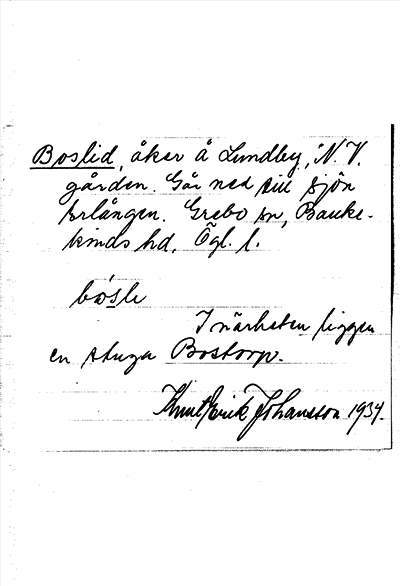 Boslid, åker å Lundby, N. V.
gården. Går ned till sjön
Erlången. Grebo sn, Banke-
kinds hd, Ögl. l.
bosle
I närheten ligger
en stuga Bostorp.
Knut Erik Johansson 1934.